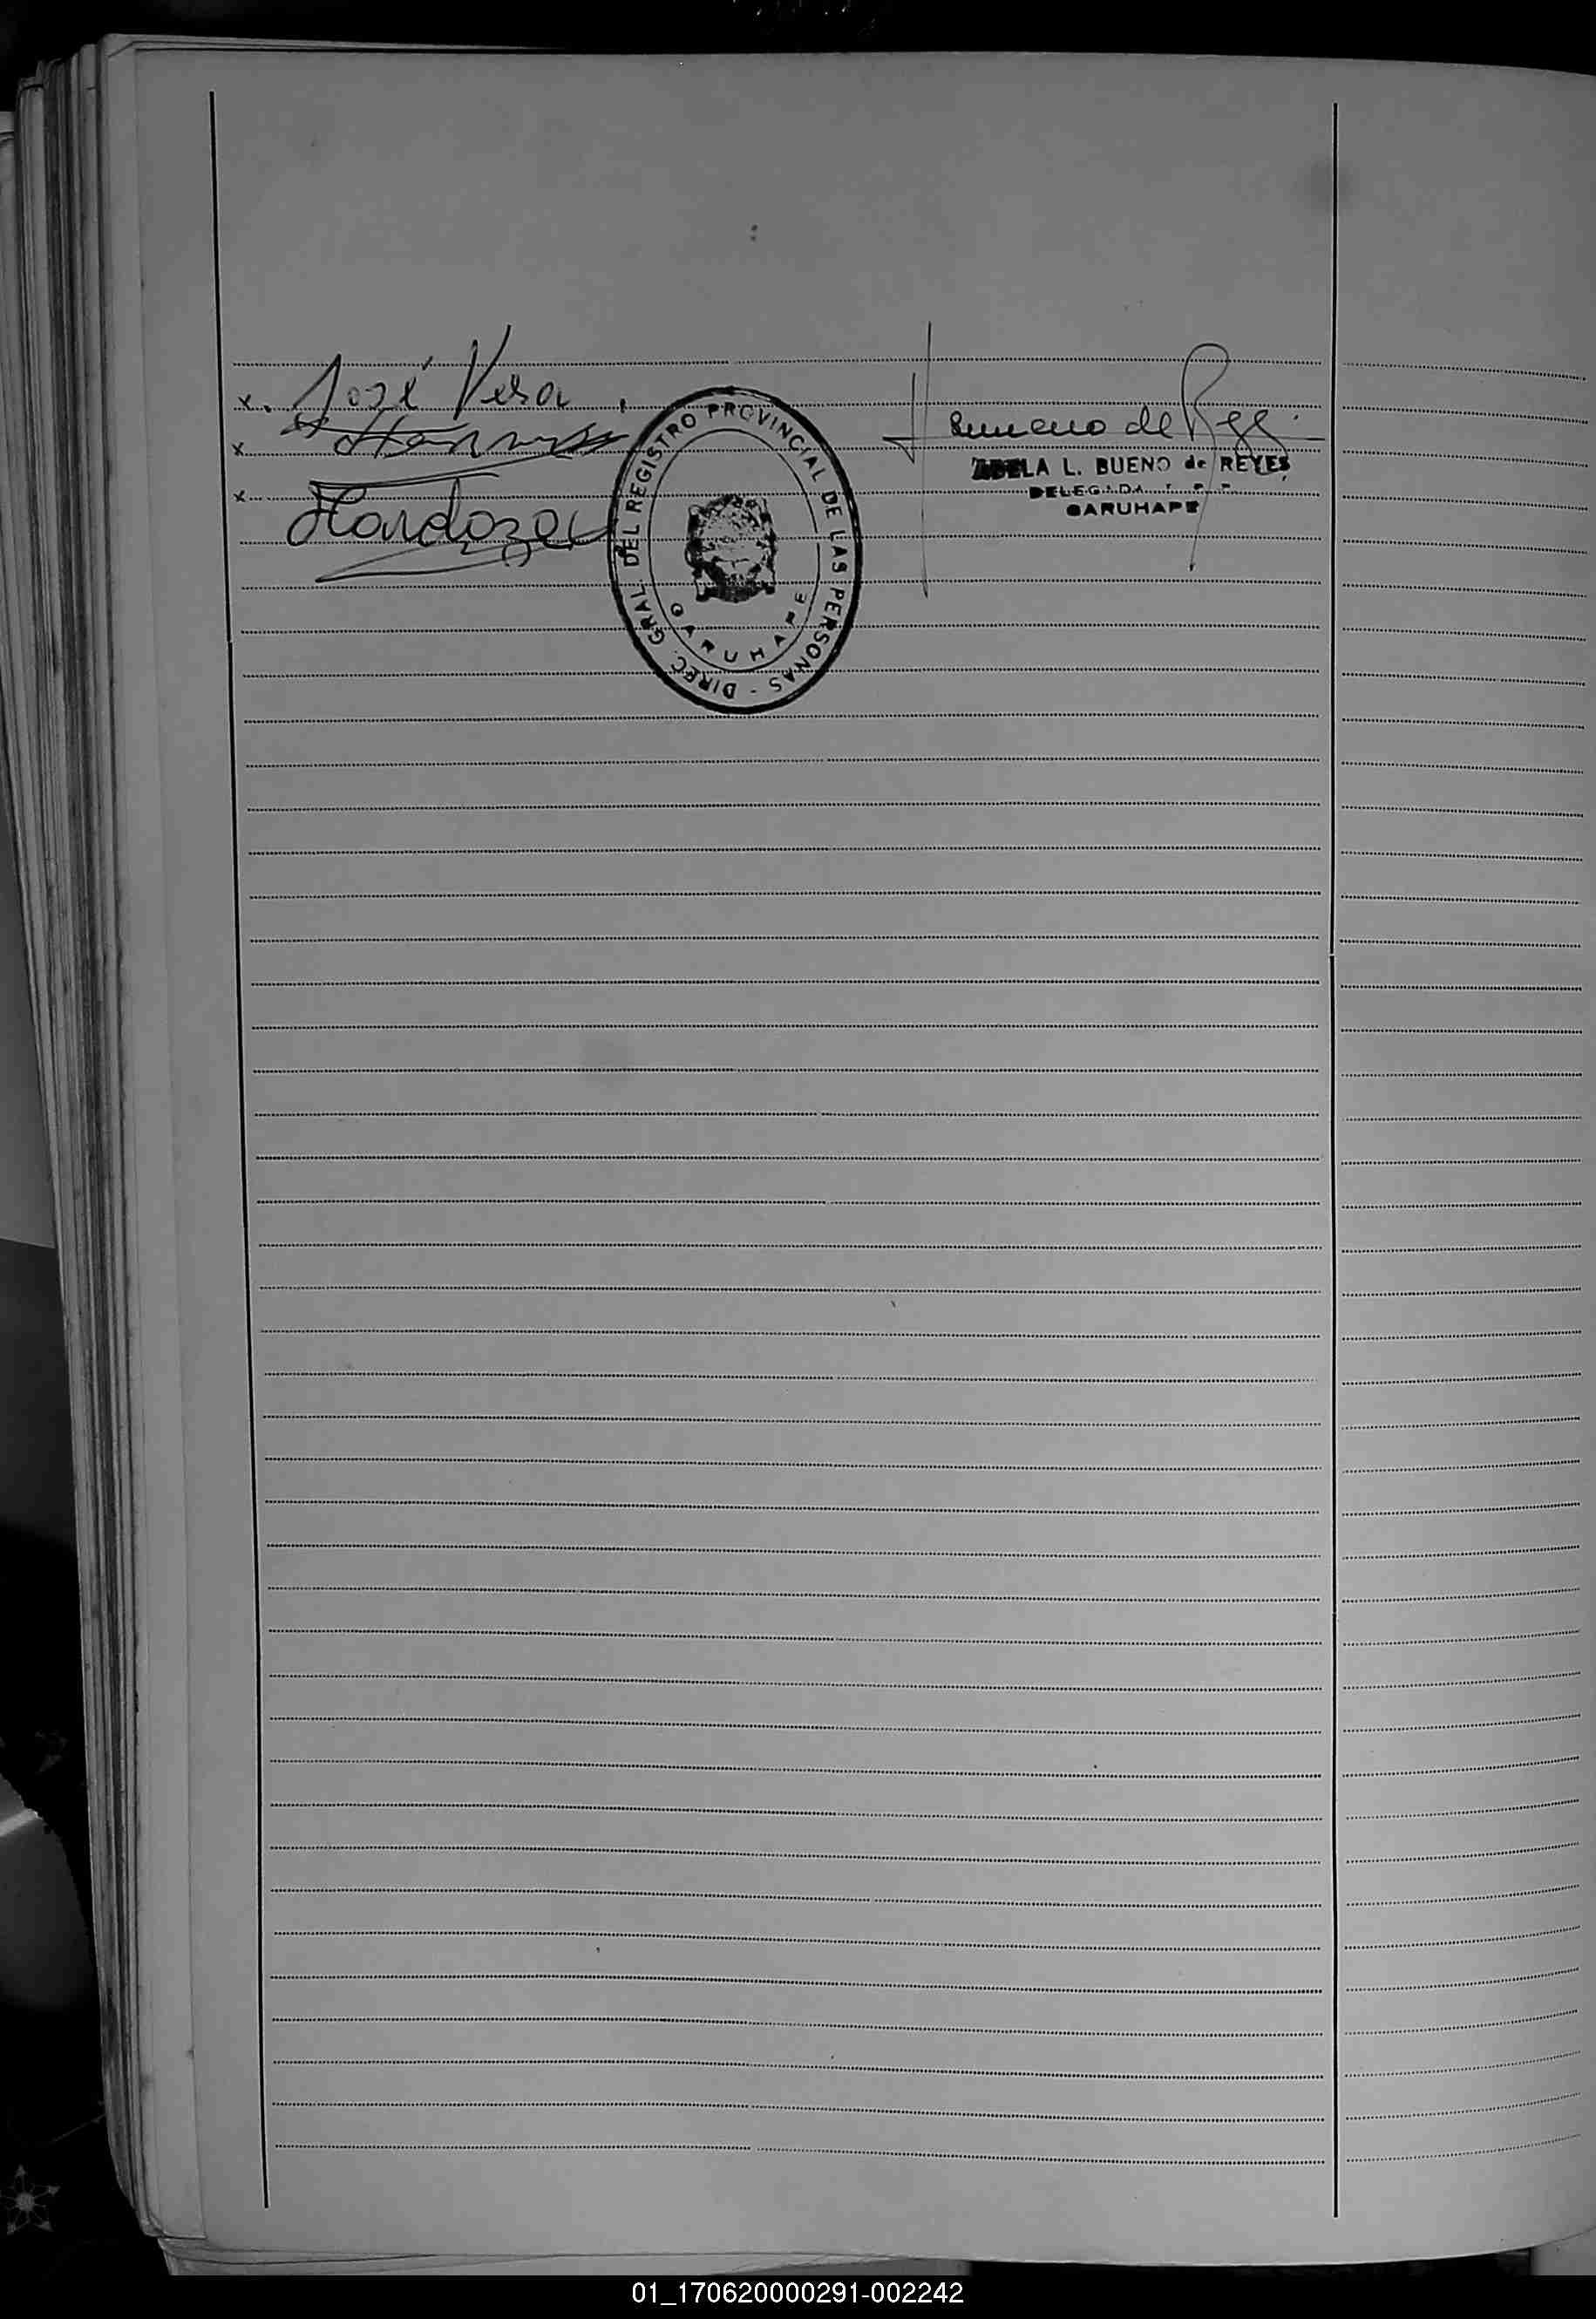 x. José Vera
x
x
DIREC. GRAL. DEL REGISTRO PROVINCIAL DE LAS PERSONAS -
GARUHAPE
de
ADELA L. BUENO de REYES
DELEGADA
GARUHAPE
01_170620000291-002242